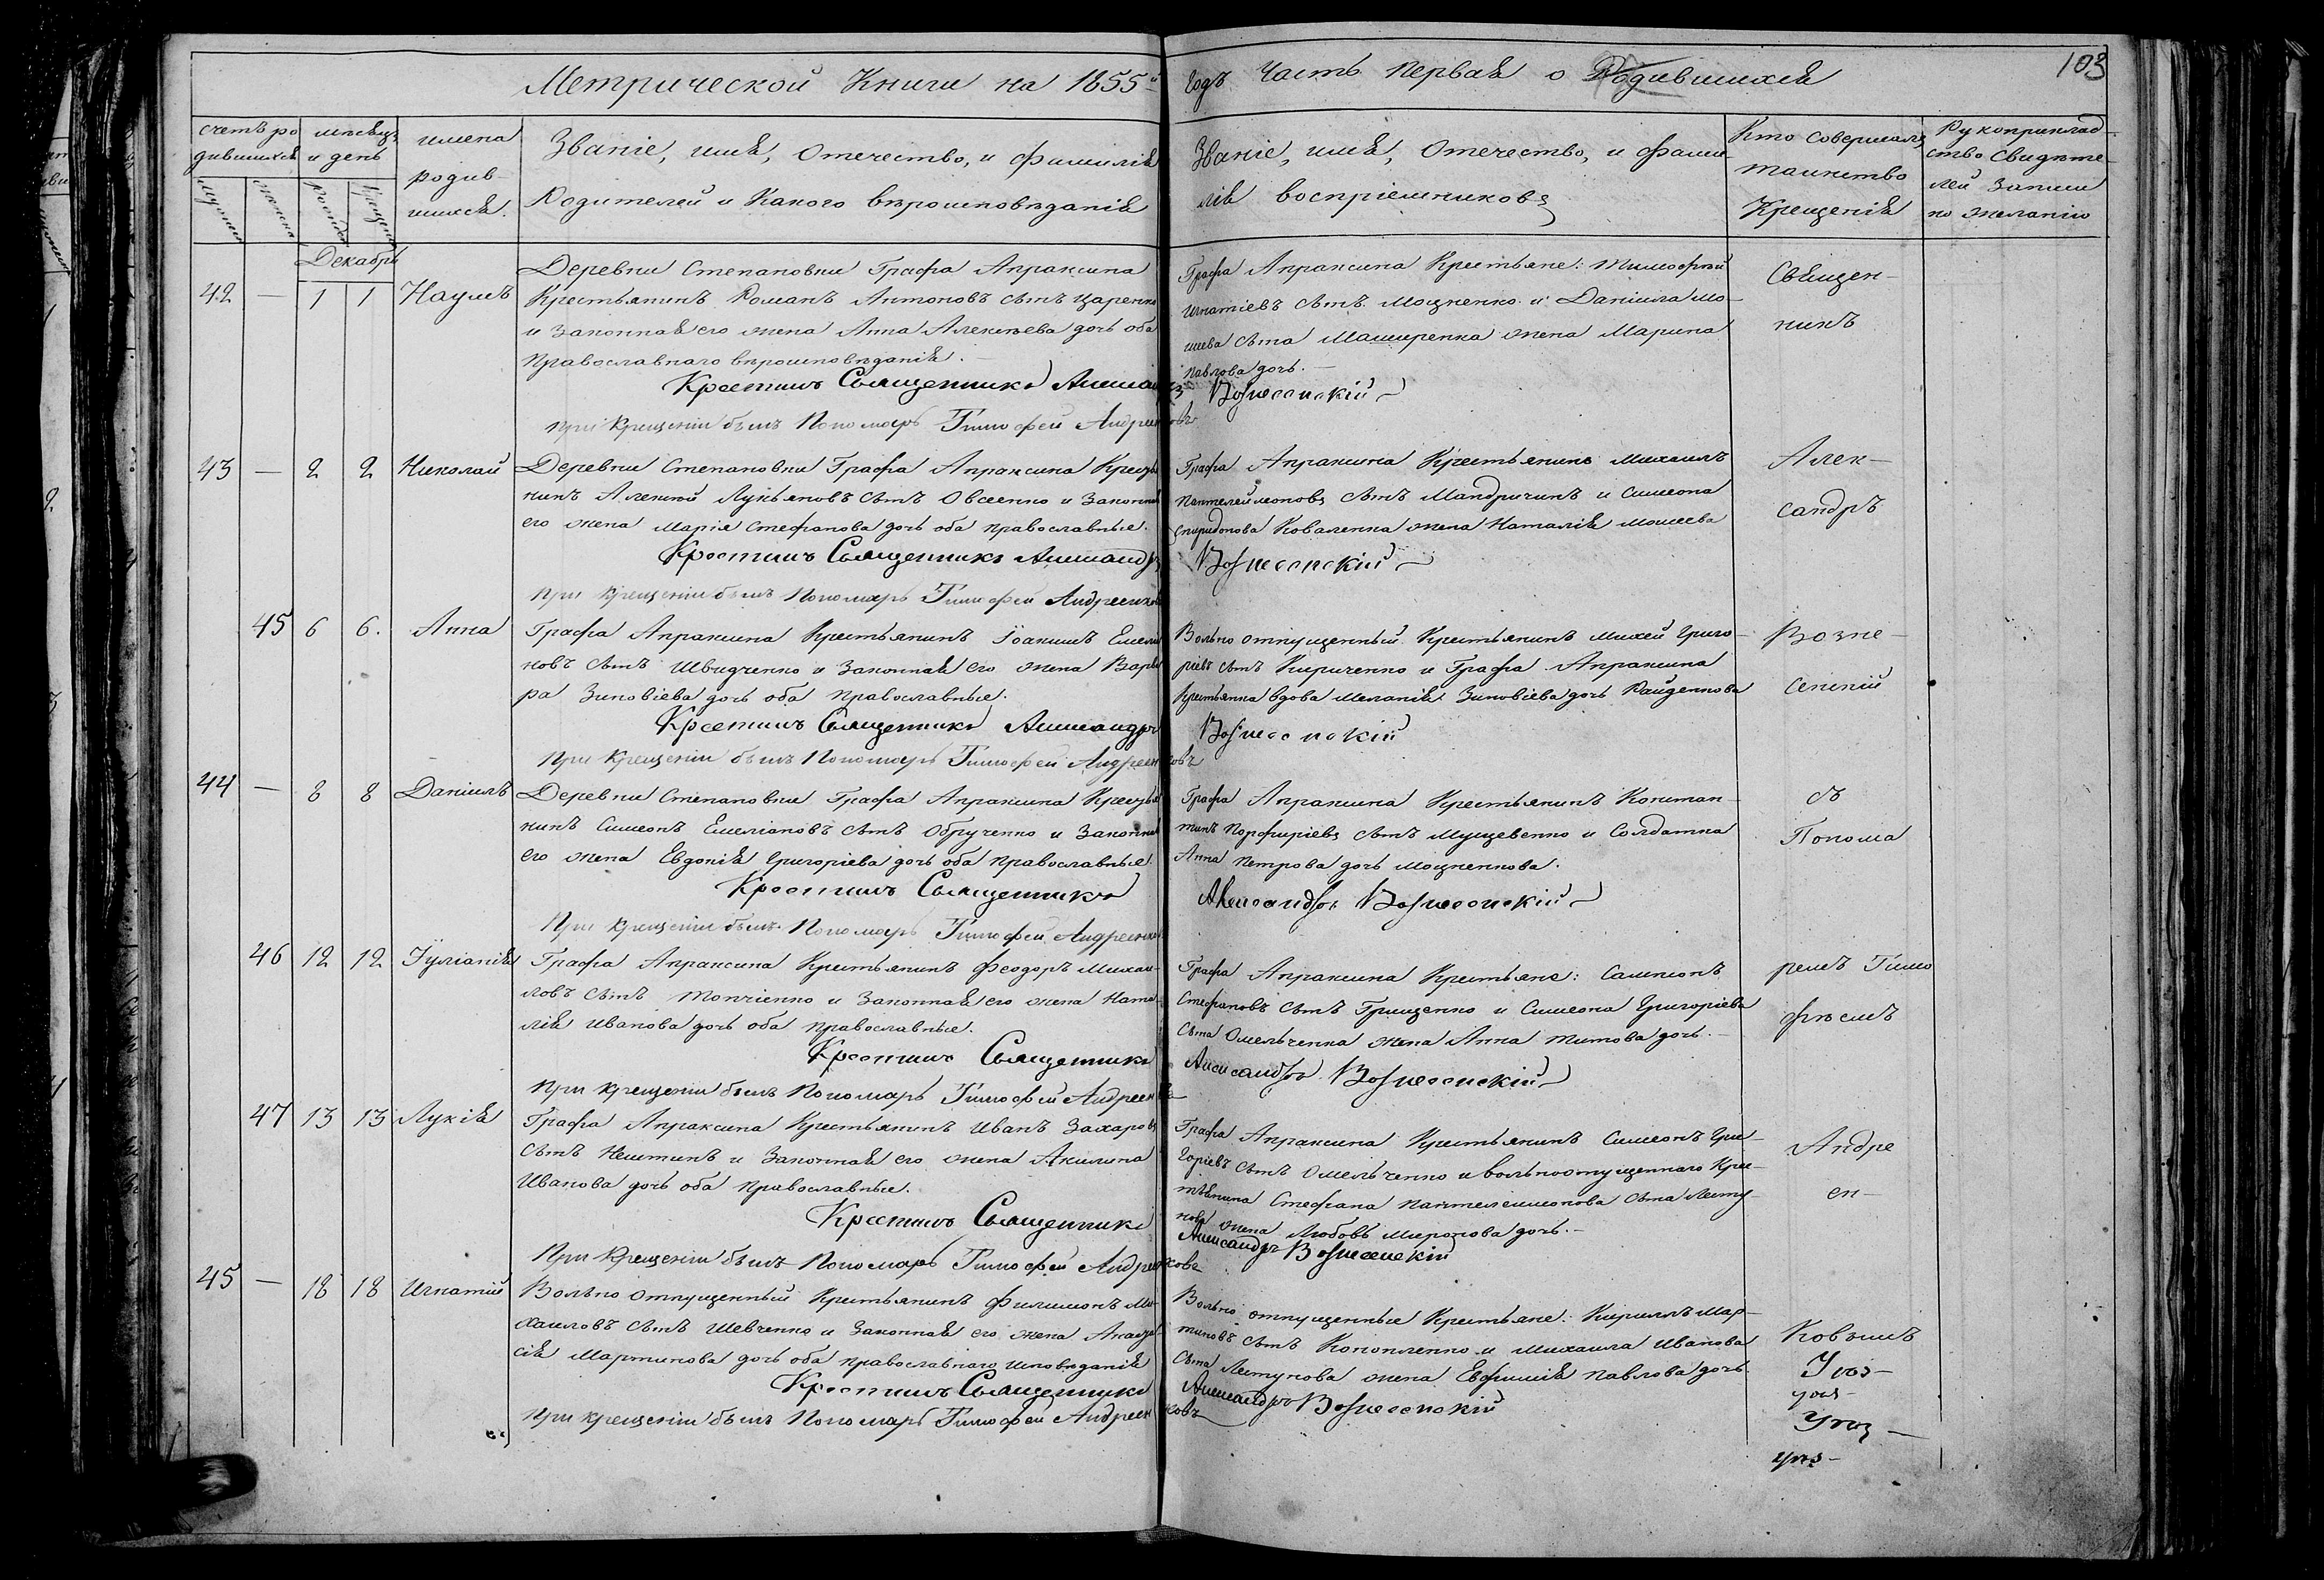 103
Метрической Книги на 1855й
Годъ Часть Первая о Родившихся
счетъ ро
дившихся
мѣсяцъ
и день
имена
родив-
шихся.
Званіе, имя, Отечество, и фамилія
Родителей и Какого вѣроисповѣданія
Званіе, имя, Отечество, и фами
лія воспріемниковъ
Кто совершалъ
таинство
Крещенія
Рукоприклад-
ство свидѣте-
лей записи
по желанію
Декабрь
42 — 1 1 Наумъ
Деревни Степановки Графа Апраксина
Крестьянинъ Романъ Антоновъ сынъ Царенко
и Законная его жена Анна Алексѣева дочь оба
Православнаго вѣроисповѣданія.
Крестилъ Священникъ
при Крещеніи былъ Пономарь Тимофей Андреенковъ
Графа Апраксина Крестьяне: Тимофѣй
Игнатіевъ сынъ Моцненко и Даніила Мо-
шева сына жена Марина
Павлова дочь.—
Вознесенскій
Священ-
никъ
43 — 2 2 Николай
Деревни Степановки Графа Апраксина Крестья
нинъ Алексѣй Лукьяновъ сынъ Овсеенко и Законная
его жена Марія Стефанова дочь оба православные.
Крестилъ Священникъ Александръ
при Крещеніи былъ Пономарь Тимофей Андреенковъ
Графа Апраксина Крестьянинъ Михаилъ
Пантелеймоновъ сынъ Мандричинъ и Симеона
Спиридонова Коваленка жена Наталія Моисеева
Вознесенскій
Алек-
сандръ
45 6 6. Анна
Графа Апраксина Крестьянинъ Іоакимъ Емелia
новъ сынъ Швидченко и Законная его жена Варва
ра Зиновіева дочь оба Православные.
Крестилъ Священникъ Александръ
при Крещеніи былъ Пономарь Тимофей Андреенковъ
Вольно отпущенный Крестьянинъ Михей Григо-
ріевъ сынъ Кириченко и Графа Апраксина
Крестьянка вдова Меланія Зиновіева дочь
Вознесенскій
Возне-
сенскій
44 — 8 8 Даніилъ
Деревни Степановки Графа Апраксина Крестья
нинъ Симеонъ Емеліановъ сынъ Обрученко и Законная
его жена Евдокія Григоріева дочь оба православные.
Крестилъ Священникъ
При Крещеніи былъ Пономарь Тимофей Андреенковъ
Графа Апраксина Крестьянинъ Констан-
тинъ Порфиріевъ сынъ Мущевенко и Солдатка
Анна Петрова дочь Моцненкова.
Александръ Вознесенскій
съ
Понома
46 12 12 Іуліанія
Графа Апраксина Крестьянинъ Феодоръ Михаи-
ловъ сынъ Топчіенко и Законная его жена Ната-
лія Иванова дочь оба православные.
Крестилъ Священникъ
при Крещеніи былъ Пономарь Тимофей Андреенковъ
Графа Апраксина Крестьяне: Сампсонъ
Стефановъ сынъ Грищенко и Симеона Григоріева
сына Омельченка жена Анна Титова дочь.—
Александръ Вознесенскій
ремъ Тимо
фѣемъ
47 13 13 Лукія
Графа Апраксина Крестьянинъ Иванъ Захаровъ
сынъ и Законная его жена Акилина
Иванова дочь оба православные.
Крестилъ Священникъ
При Крещеніи былъ Пономарь Тимофей Андреенкова
Графа Апраксина Крестьянинъ Симеонъ Гри-
горіевъ сынъ Омельченко и вольноотпущеннаго Крес-
тьянина Стефана Пантелеимонова сына
жена Любовь Миронова дочь.—
Александръ Вознесенскій
Андре
ен-
45 — 18 18 Игнатій
Вольно отпущенный Крестьянинъ Филимонъ Ми-
хаиловъ сынъ Шевченко и Законная его жена
Мартинова дочь оба православнаго исповѣданія
Крестилъ Священникъ
При крещеніи былъ Пономарь Тимофей Андреенковъ
Вольно отпущенные Крестьяне: Кириллъ Мар-
тиновъ сынъ Конопленко и Михаила Иванова
сына жена Евфимія Павлова дочь
Александръ Вознесенскій
Ковымъ